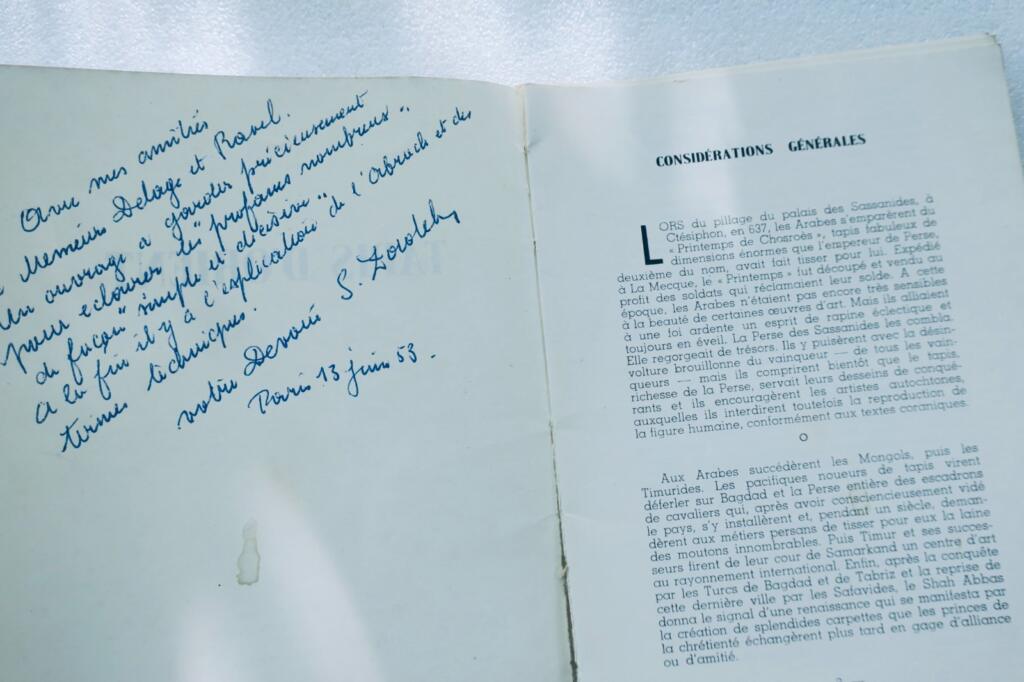 Avec mes amitiés
Messieurs Delage et Ravel.
Un ouvrage a garder précieusement
pour eclairer les "profanes nombreux".
de façon "simple et décisive".
a la fin il y a l'explication de l'Abrach et des
termes techniques.
votre Devoué
Paris 13 juin 53.
CONSIDÉRATIONS GÉNÉRALES
LORS du pillage du palais des Sassanides, à
Ctésiphon, en 637, les Arabes s'emparèrent du
« Printemps de Chosroès », tapis fabuleux de
dimensions énormes que l'empereur de Perse,
deuxième du nom, avait fait tisser pour lui. Expédié
à La Mecque, le « Printemps » fut découpé et vendu au
profit des soldats qui réclamaient leur solde. A cette
époque, les Arabes n'étaient pas encore très sensibles
à la beauté de certaines œuvres d'art. Mais ils alliaient
à une foi ardente un esprit de rapine éclectique et
toujours en éveil. La Perse des Sassanides les combla.
Elle regorgeait de trésors. Ils y puisèrent avec la désin-
volture brouillonne du vainqueur — de tous les vain-
queurs — mais ils comprirent bientôt que le tapis,
richesse de la Perse, servait leurs desseins de conqué-
rants et ils encouragèrent les artistes autochtones,
auxquelles ils interdirent toutefois la reproduction de
la figure humaine, conformément aux textes coraniques.
Aux Arabes succédèrent les Mongols, puis les
Timurides. Les pacifiques noueurs de tapis virent
déferler sur Bagdad et la Perse entière des escadrons
de cavaliers qui, après avoir consciencieusement vidé
le pays, s'y installèrent et, pendant un siècle, deman-
dèrent aux métiers persans de tisser pour eux la laine
des moutons innombrables. Puis Timur et ses succes-
seurs firent de leur cour de Samarkand un centre d'art
au rayonnement international. Enfin, après la conquête
par les Turcs de Bagdad et de Tabriz et la reprise de
cette dernière ville par les Safavides, le Shah Abbas
donna le signal d'une renaissance qui se manifesta par
la création de splendides carpettes que les princes de
la chrétienté échangèrent plus tard en gage d'alliance
ou d'amitié.